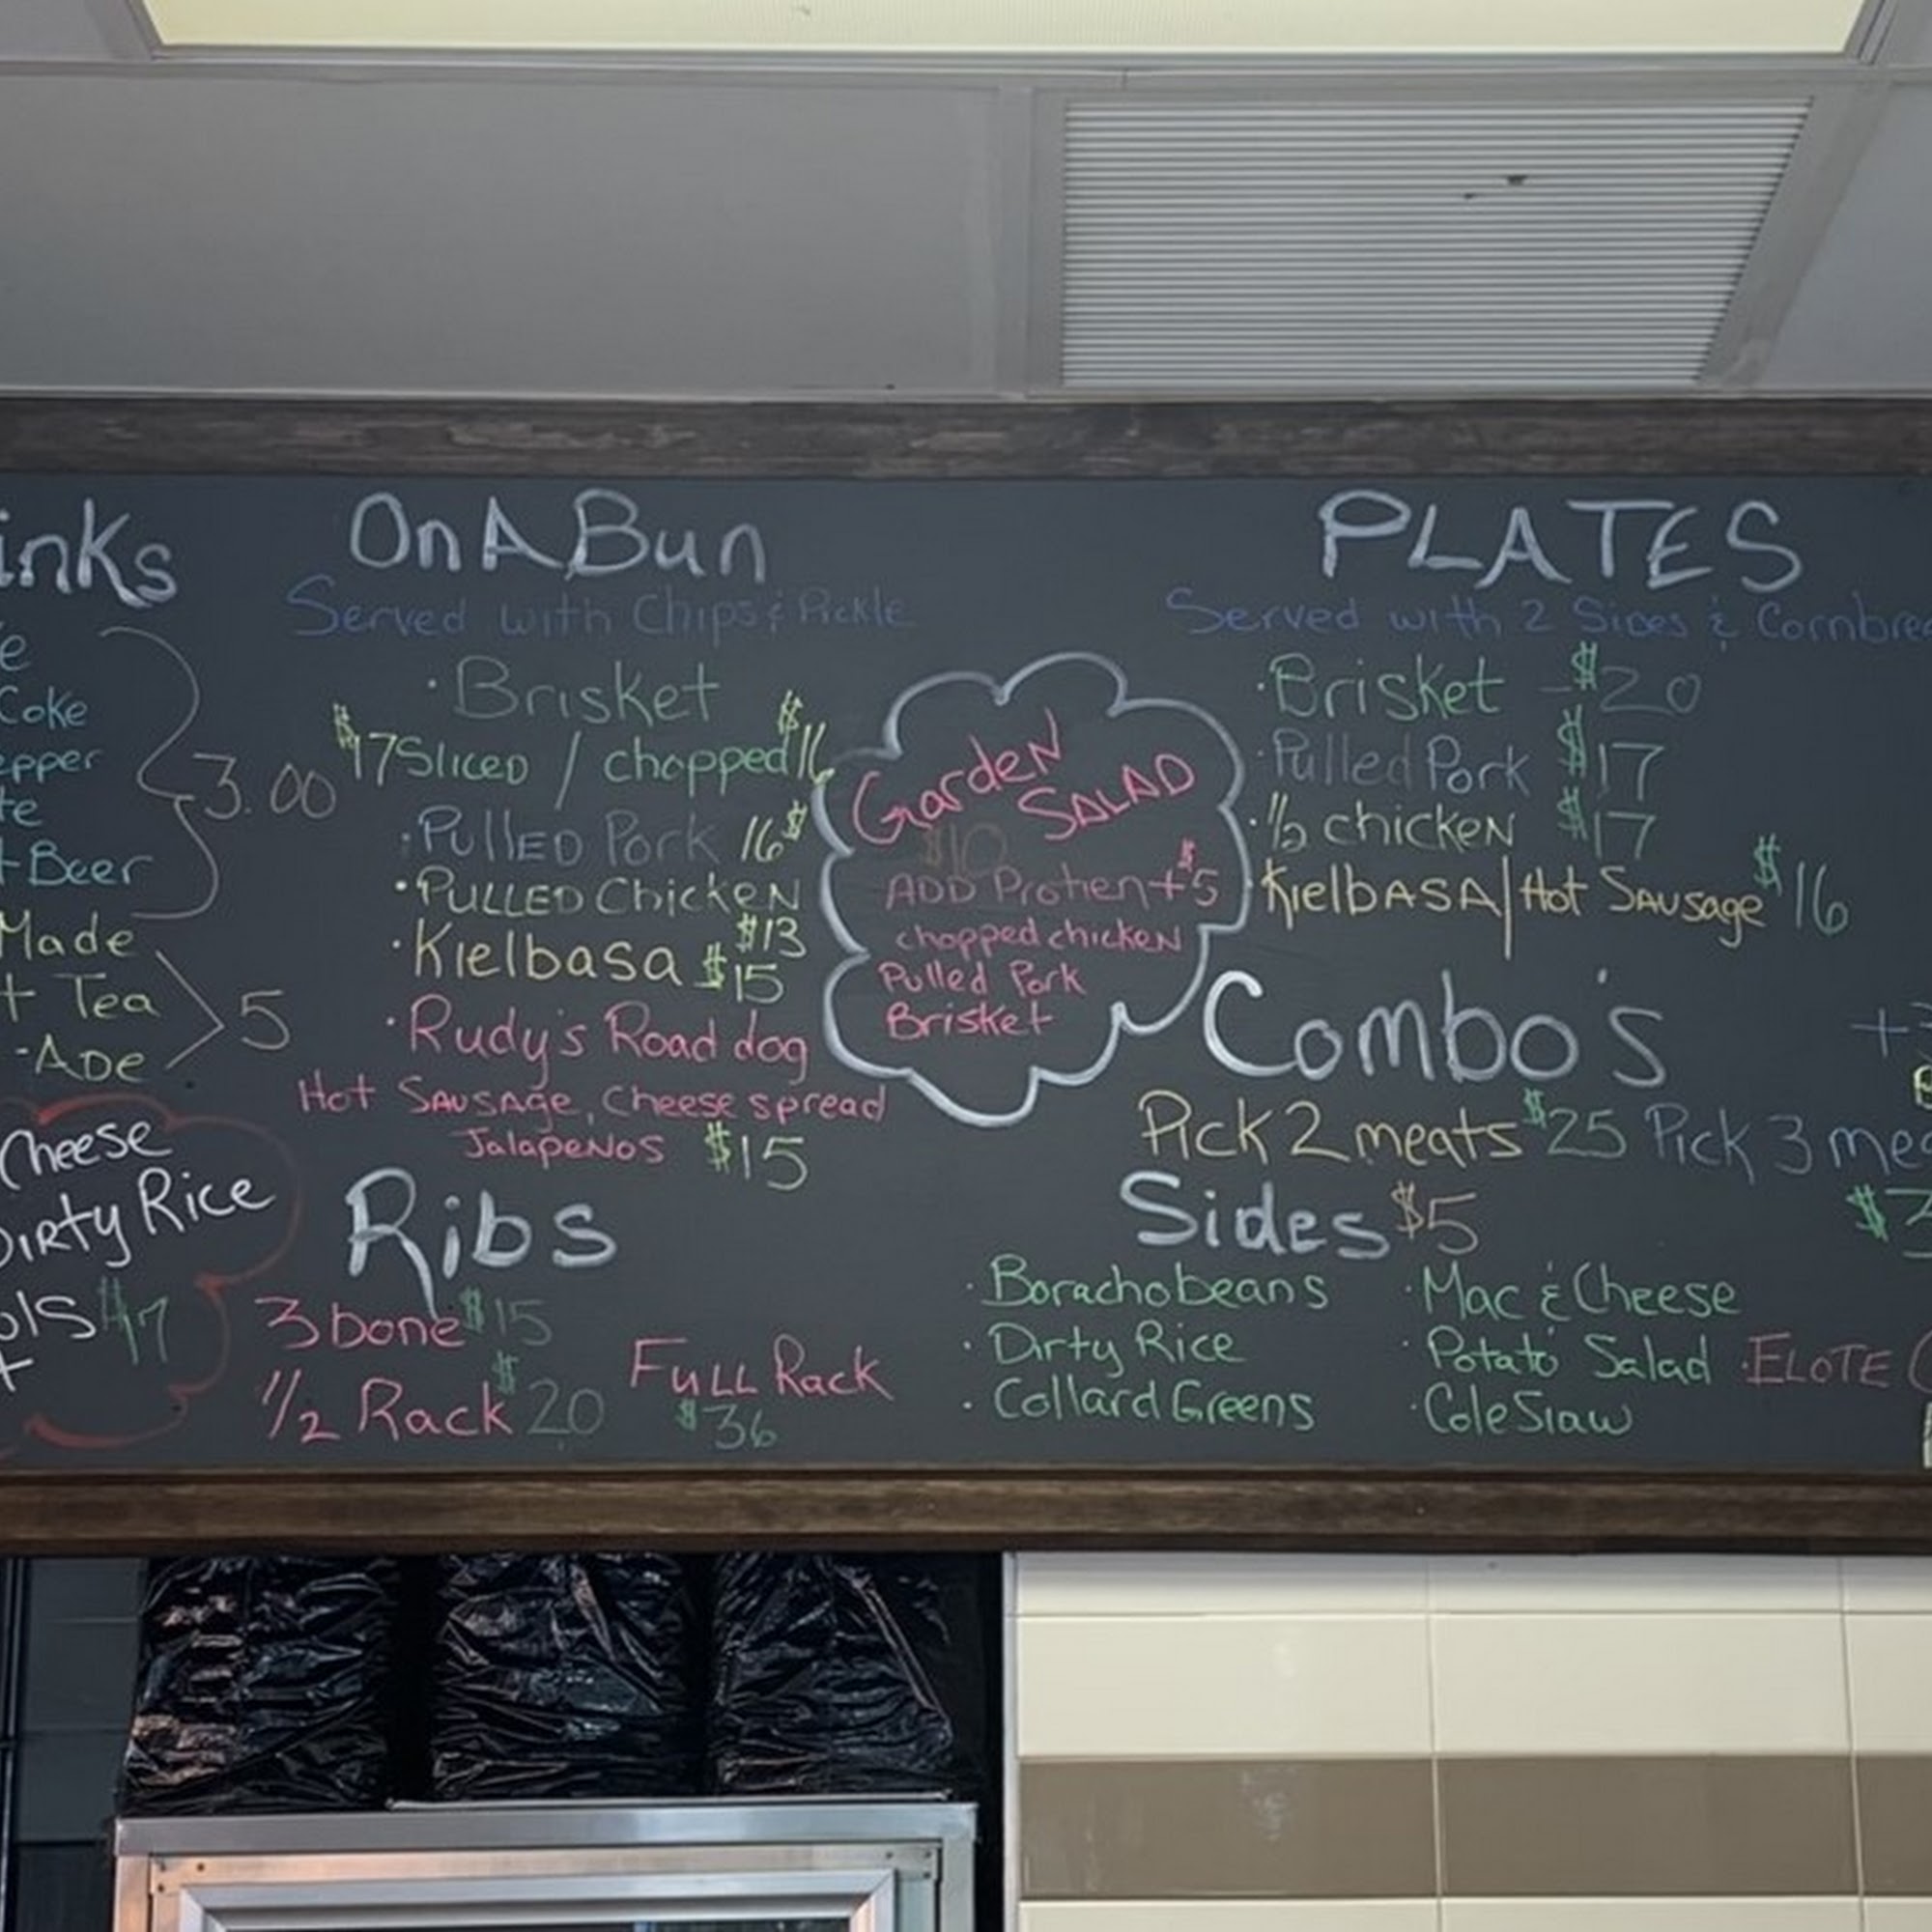 inks
Coke
epper
Beer
3.00
Made
Tea
-ADE
5
Cheese
DIRTY Rice
ols $7
On A Bun
Served with Chips & Pickle
·Brisket
$17 Sliced / chopped $16
·PULLED Pork 16$
·PULLED ChickeN
$13
·Kielbasa $15
·Rudy's Road dog
Hot SAUSAge, Cheese spread
JalapeNos $15
Ribs
3 bone $15
1/2 Rack $20
FULL Rack
$36
GardeN
SALAD
$10
ADD Protien +$5
chopped chickeN
Pulled Pork
Brisket
PLATES
Served with 2 Sides & Cornbre
·Brisket - $20
·Pulled Pork $17
·1/2 chickeN $17
·KielbASA/Hot SAusage $16
Combo's
Pick 2 meats $25 Pick 3 me
Sides $5
·Boracho beans
·Dirty Rice
·Collard Greens
·Mac & Cheese
·Potato Salad
·Cole Slaw
·ELOTE